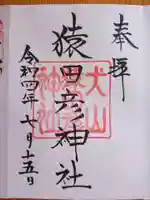 奉拝
猿田彦神社
令和四年七月十五日
犬山
神社